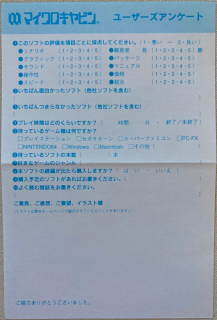 マイクロキャビン ユーザーズアンケート
●このソフトの評価を項目ごとに採点してください。(1-悪い ～ 5-良い)
●シナリオ (1・2・3・4・5)
●グラフィック (1・2・3・4・5) ●パッケージ (1・2・3・4・5)
●サウンド (1・2・3・4・5) ●マニュアル (1・2・3・4・5)
●操作性 (1・2・3・4・5) ●価格 (1・2・3・4・5)
●スピード (1・2・3・4・5) ●総合 (1・2・3・4・5)
いちばん面白かったソフト(他社ソフトも含む)
いちばんつまらなかったソフト(他社ソフト含む)
プレイ時間はどのくらいですか？ 時間 分 ・ 終了/未終了
持っているゲーム機は何ですか？
□プレイステーション □セガサターン □スーパーファミコン □PC-FX
□NINTENDO64 □Windows □Macintosh □その他( )
持っているソフトの本数 本
好きなゲームのジャンル
本ソフトの続編が出たら購入しますか？ はい いいえ
購入予定のソフトがあればお書きください。
よく読む雑誌をお書きください。
ご意見、ご感想、ご要望、イラスト欄
ご協力ありがとうございました。